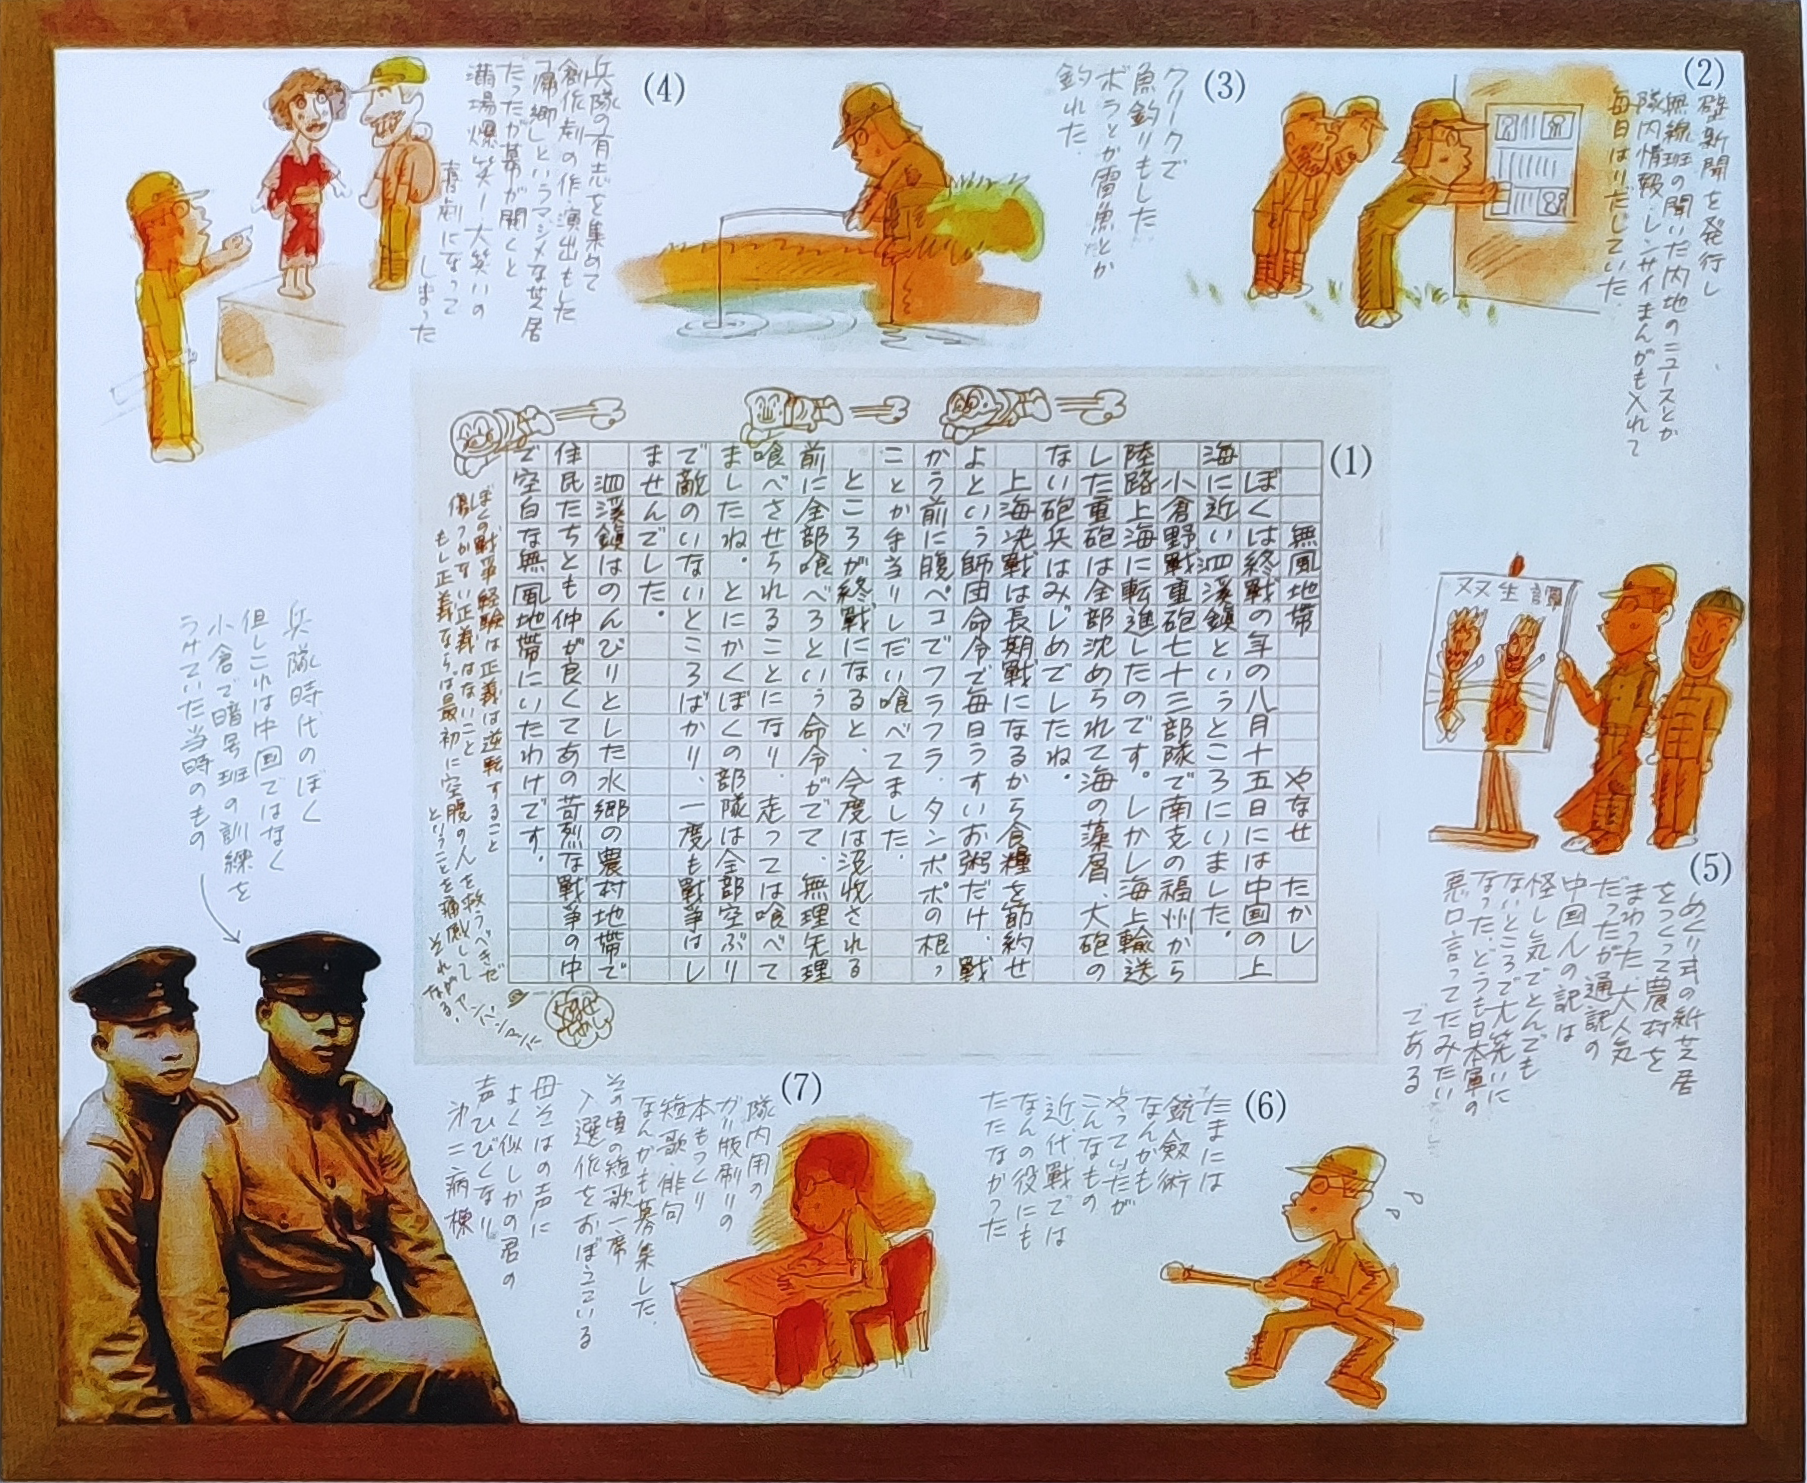 (1)
無風地帯　　やなせ　たかし
ぼくは終戦の年の八月十五日には中国の上
海に近い泗溪鎮というところにいました。
小倉野戦重砲七十三部隊で南支の福州から
陸路上海に転進したのです。しかし海上輸送
した重砲は全部沈められて海の藻屑、大砲の
ない砲兵はみじめでしたね。
上海決戦は長期戦になるから食糧を節約せ
よという師団命令で毎日うすいお粥だけ、戦
かう前に腹ペコでフラフラ、タンポポの根っ
ことか手当りしだい喰べてました。
ところが終戦になると、今度は没収される
前に全部喰べろという命令がでて、無理矢理
喰べさせられることになり、走っては喰べて
ましたね。とにかくぼくの部隊は全部空ぶり
で敵のいないところばかり、一度も戦争はし
ませんでした。
泗溪鎮はのんびりとした水郷の農村地帯で
住民たちとも仲が良くてあの苛烈な戦争の中
で空白な無風地帯にいたわけです。
ぼくの戦争経験は正義は逆転すること
傷つかない正義はないこと
もし正義ならば最初に空腹の人を救うべきだ
ということを痛感して それが
アンパンマンに
なる、
やなせ
たかし
(2)
壁新聞を発行し
無線班の聞いた内地のニュースとか
隊内情報、レンサイまんがも入れて
毎日はりだしていた
(3)
クリークで
魚釣りもした
ボラとか雷魚とか
釣れた
(4)
兵隊の有志を集めて
創作劇の作・演出もした
「帰郷」というマジメな芝居
だったが幕が開くと
満場爆笑！大笑いの
喜劇になって
しまった
双生譚
(5)
めくり式の紙芝居
をつくって農村を
まわった 大人気
だったが通訳の
中国人の訳は
怪し気でとんでも
ないところで大笑いに
なった、どうも日本軍の
悪口言ってたみたい
である
(6)
たまには
銃剣術
なんかも
やっていたが
こんなもの
近代戦では
なんの役にも
たたなかった
(7)
隊内用の
ガリ版刷りの
本もつくり
短歌・俳句
なんかも募集した
その頃の短歌一席
入選作をおぼえている
母そはの声に
よく似しかの君の
声ひびくなり
第二病棟
兵隊時代のぼく
但しこれは中国ではなく
小倉で暗号班の訓練を
うけていた当時のもの